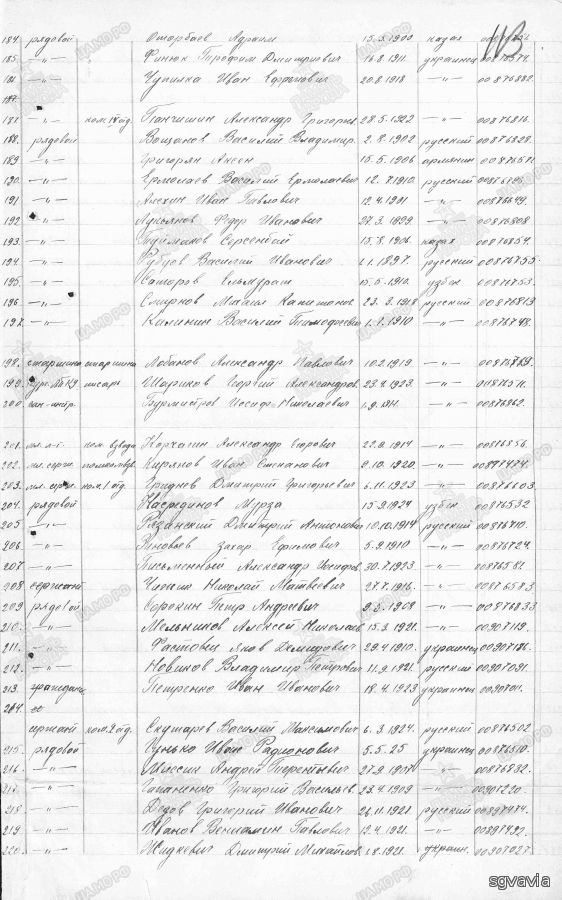 113
184. рядовой Отарбаев Адраим 15.5.1900 казах
185. -"- Финюк Трофим Дмитриевич 16.8.1911. украинец 00876574.
186. -"- Чупилка Иван 20.8.1918 -"- 00876882.
187.
187. -"- ком. отд. Панчишин Александр Григорьев. 28.5.1922 -"- 00876816.
188. рядовой Вощанов Василий Владимир. 2.8.1902 русский 00876828.
189 -"- Григорян Аксен 15.5.1906 армянин 00876571
190. -"- Ермолаев Василий Ермолаевич 12.7.1910. русский
191 -"- Алехин Иван Павлович 12.4.1901 -"- 00876649.
192 -"- Лукьянов Фёдор Иванович 27.3.1899 -"- 00876808
193. -"- 15.8.1906. казах 00876854.
194 -"- Рубцов Василий Иванович 1.1.1897. русский 00876755.
195. -"- Саттаров Ельмурат 15.5.1910. узбек 00876753.
196 -"- Смирнов 23.3.1918 русский 00876813
197. -"- Калинин Василий Тимофеевич 1.1.1910 -"- 00876748.
198. старшина старшина Лобанов Александр Павлович 10.2.1919 -"- 00876769.
199. писарь Шариков Георгий Александров. 23.4.1923. -"-
200. сан-инстр. Бурмистров Иосиф Николаевич 1.9.1914. -"- 00876862.
201. мл. л-т. ком. взвода Корчагин Александр Егорович 22.8.1914 -"- 00876856.
202. мл. серж. помком.взв. Кирянов Иван Степанович 9.10.1920. -"- 00897474.
203. мл. серж. ком. 1 отд. Гриднев Дмитрий Григорьевич 6.11.1923 -"- 00876603
204. рядовой Насрединов Мурза 15.9.1924 узбек 00876532
205 -"- Рязанский Дмитрий Антонович 10.10.1914 русский 00876710.
206. -"- Зиновьев Захар Ефимович 5.9.1910 -"- 00876724.
207 -"- Письменный Александр 30.7.1923 -"- 00876581
208 сержант Николай Матвеевич 27.7.1916. -"- 00876583.
209 рядовой Сорокин Петр Андреевич 9.5.1908 -"- 00876833
210. -"- Мельников Алексей Николаев. 15.3.1921. -"- 00907119.
211. -"- Фастовец Яков Демидович 29.4.1910. украинец 00907186.
212. -"- Новиков Владимир Петрович 11.9.1921. русский 00907091.
213. Петренко Иван Иванович 18.4.1923 украинец 00907011.
214.
сержант ком. 2 отд. Скушарев Василий Максимович 6.3.1924. русский 00876502
215. рядовой Сунько Иван Радионович 5.5.25 украинец 00876510.
216. -"- Миссик Андрей Терентьевич 27.9.1907 -"- 00876832.
217. -"- Гапаненко Григорий Васильев. 23.4.1909 -"- 00907220.
218. -"- Дедов Григорий Иванович 26.11.1921 русский 00897474.
219 -"- Иванов Вениамин Павлович 12.4.1921. -"- 00897492.
220. -"- Жидкевич Дмитрий Михайлов. 1.8.1921. украин. 00907027.
ЦАМО РФ
sgvavia